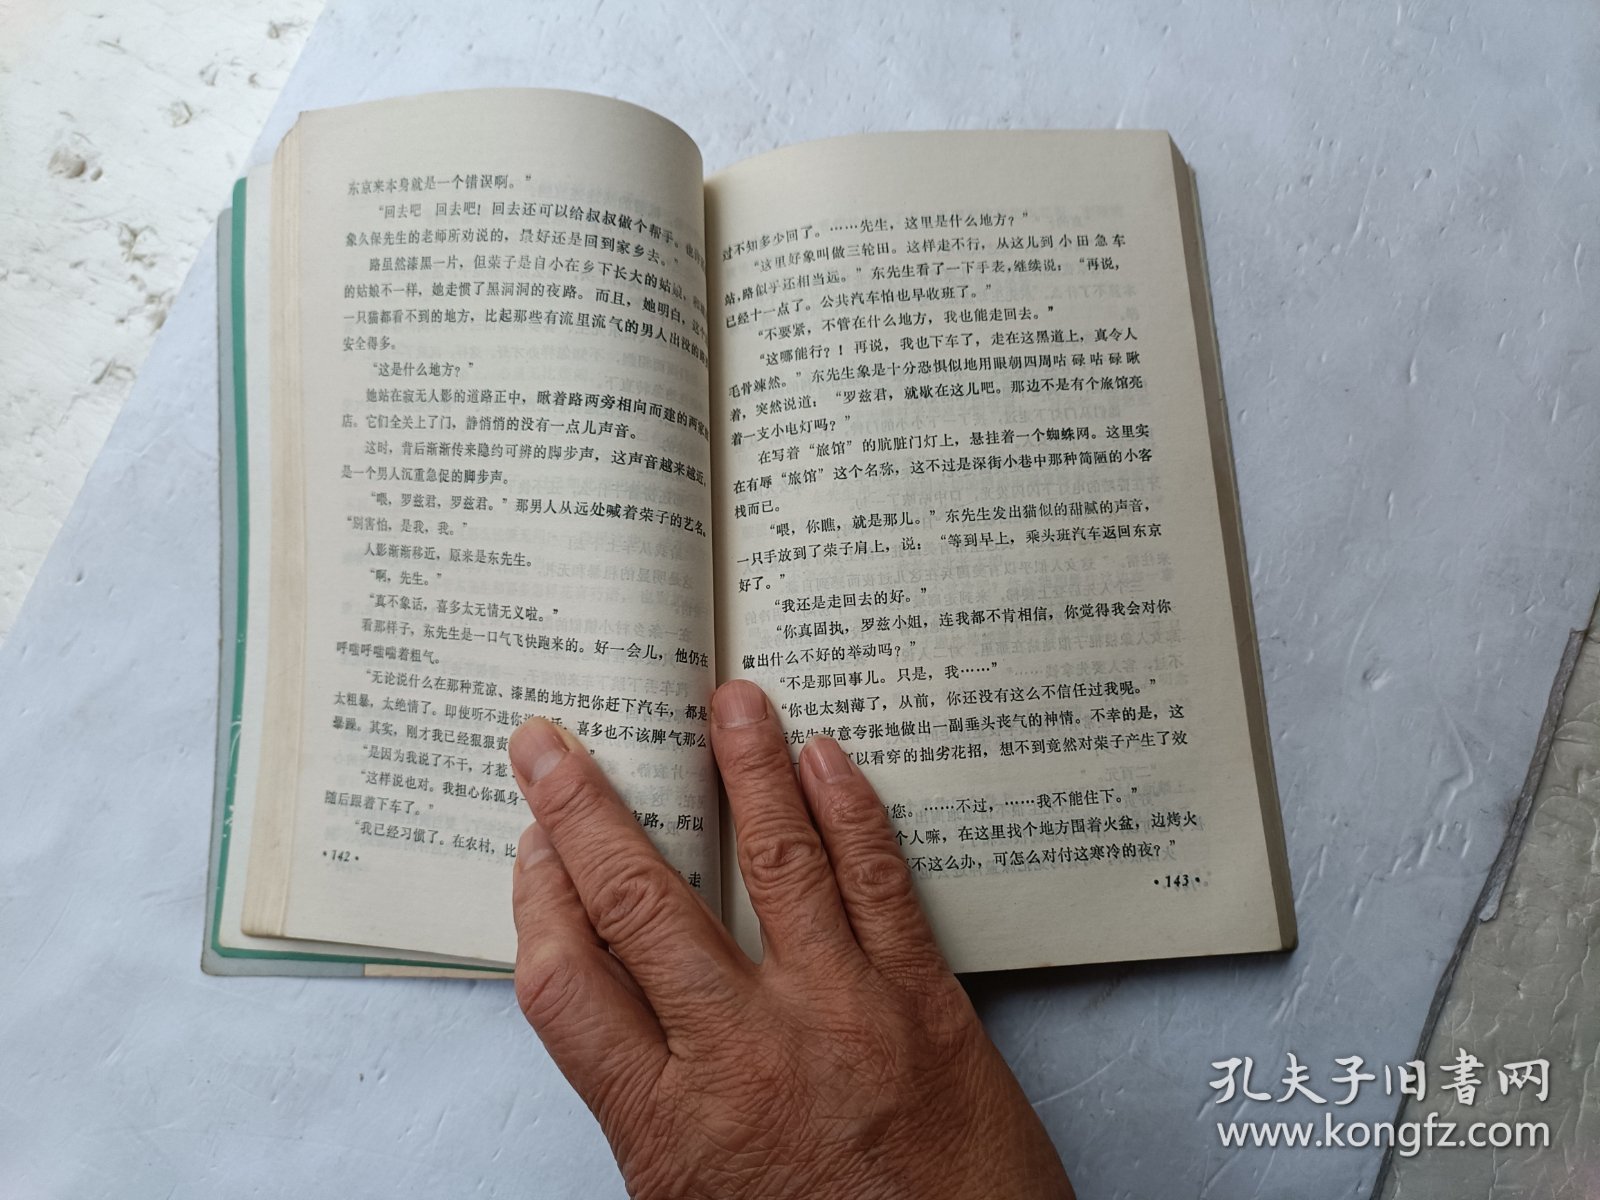 东京来本身就是一个错误啊。”
“回去吧　回去吧！回去还可以给叔叔做个帮手。也许
象久保先生的老师所劝说的，最好还是回到家乡去。”
路虽然漆黑一片，但荣子是自小在乡下长大的姑娘，
的姑娘不一样，她走惯了黑洞洞的夜路。而且，她明白，这个
一只猫都看不到的地方，比起那些有流里流气的男人出没的
安全得多。
“这是什么地方？”
她站在寂无人影的道路正中，瞅着路两旁相向而建的两家
店。它们全关上了门，静悄悄的没有一点儿声音。
这时，背后渐渐传来隐约可辨的脚步声，这声音越来越近，
是一个男人沉重急促的脚步声。
“喂，罗兹君，罗兹君。”那男人从远处喊着荣子的艺名。
“别害怕，是我，我。”
人影渐渐移近，原来是东先生。
“啊，先生。”
“真不象话，喜多太无情无义啦。”
看那样子，东先生是一口气飞快跑来的。好一会儿，他仍在
呼哧呼哧喘着粗气。
“无论说什么在那种荒凉、漆黑的地方把你赶下汽车，都是
太粗暴，太绝情了。即使听不进你 喜多也不该脾气那么
暴躁。其实，刚才我已经狠狠责
“是因为我说了不干，才惹
“这样说也对。我担心你孤身一 夜路，所以
随后跟着下车了。”
“我已经习惯了。在农村，比 走
·142·
过不知多少回了。……先生，这里是什么地方？”
“这里好象叫做三轮田。这样走不行，从这儿到小田急车
站，路似乎还相当远。”东先生看了一下手表，继续说：“再说，
已经十一点了。公共汽车怕也早收班了。”
“不要紧，不管在什么地方，我也能走回去。”
“这哪能行？！再说，我也下车了，走在这黑道上，真令人
毛骨竦然。”东先生象是十分恐惧似地用眼朝四周咕碌咕碌瞅
着，突然说道：“罗兹君，就歇在这儿吧。那边不是有个旅馆亮
着一支小电灯吗？”
在写着“旅馆”的肮脏门灯上，悬挂着一个蜘蛛网。这里实
在有辱“旅馆”这个名称，这不过是深街小巷中那种简陋的小客
栈而已。
“喂，你瞧，就是那儿。”东先生发出猫似的甜腻的声音，
一只手放到了荣子肩上，说：“等到早上，乘头班汽车返回东京
好了。”
“我还是走回去的好。”
“你真固执，罗兹小姐，连我都不肯相信，你觉得我会对你
做出什么不好的举动吗？”
“不是那回事儿。只是，我……”
“你也太刻薄了，从前，你还没有这么不信任过我呢。”
东先生故意夸张地做出一副垂头丧气的神情。不幸的是，这
一 可以看穿的拙劣花招，想不到竟然对荣子产生了效
您。……不过，……我不能住下。”
个人嘛，在这里找个地方围着火盆，边烤火
不这么办，可怎么对付这寒冷的夜？”
·143·
孔夫子旧书网
www.kongfz.com